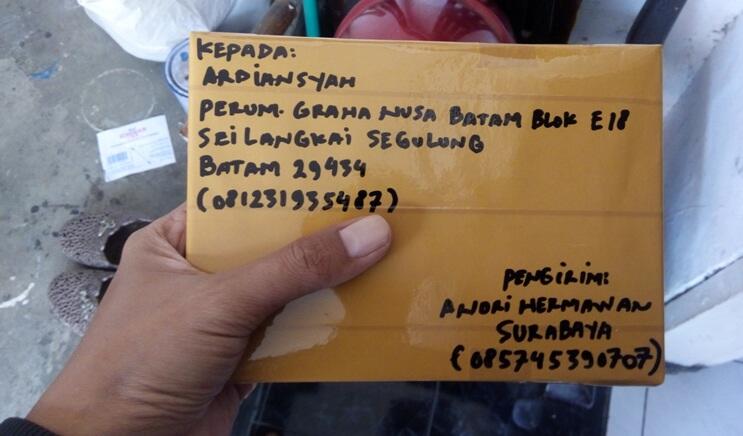 KEPADA:
ARDIANSYAH
PERUM. GRAHA NUSA BATAM BLOK E18
SEI LANGKAI SEGULUNG
BATAM 29434
(081231935487)
PENGIRIM:
ANDRI HERMAWAN
SURABAYA
(085745390707)